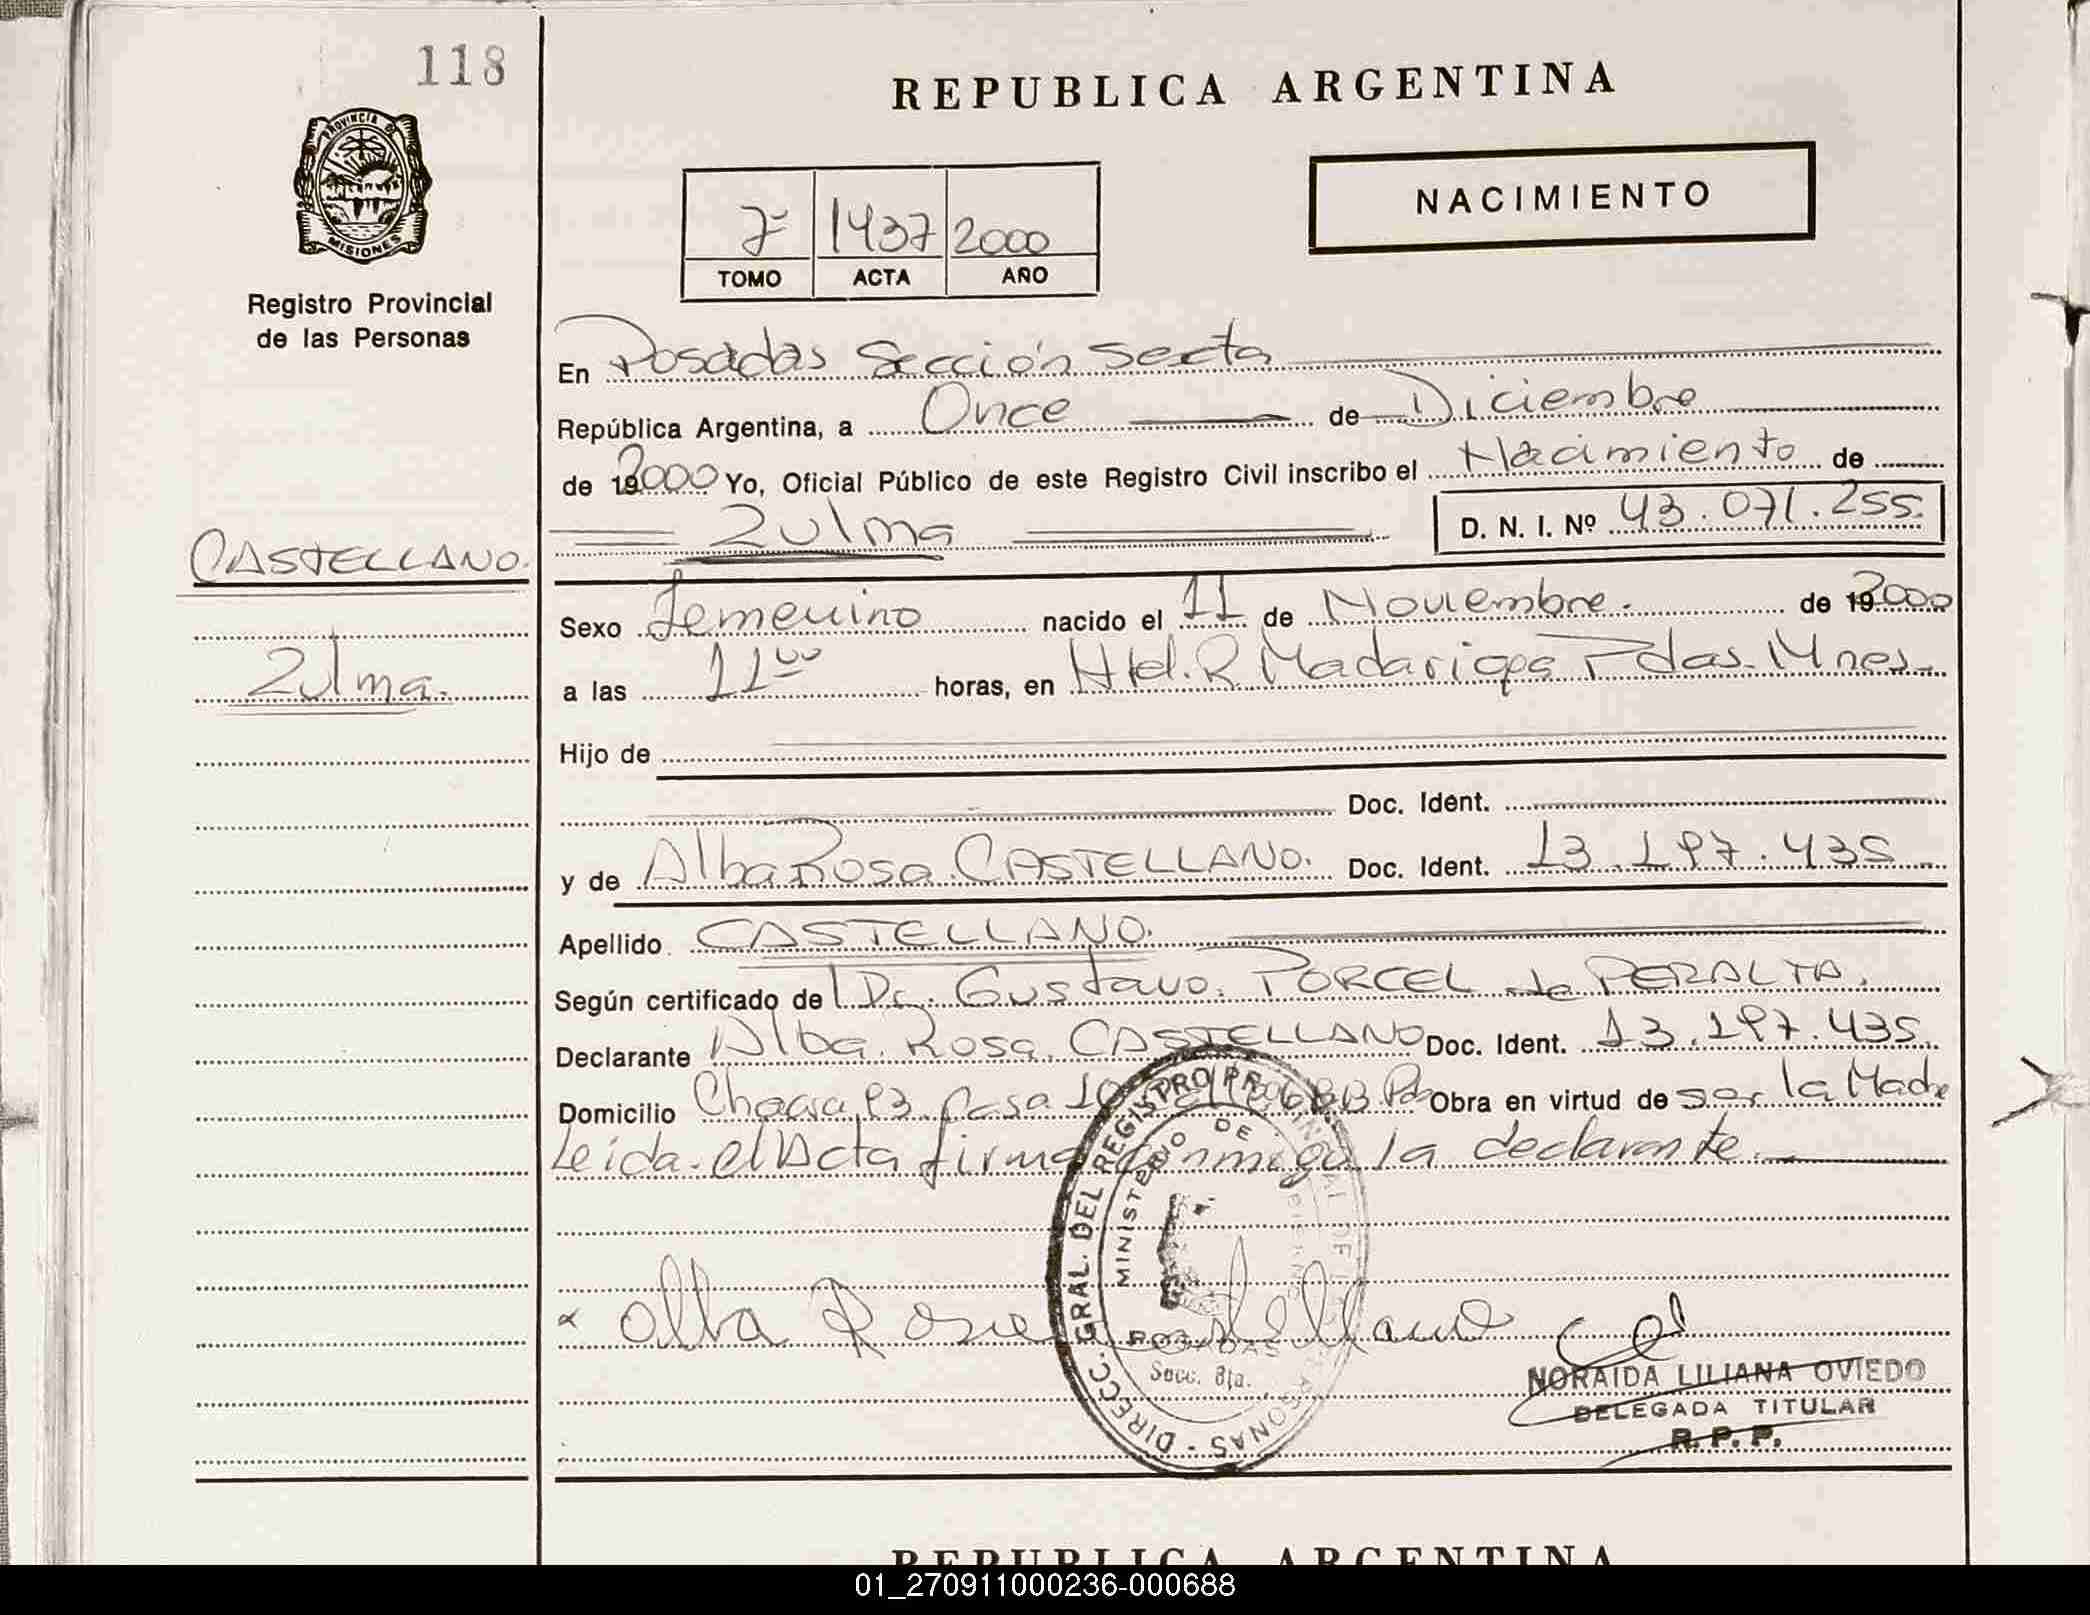 118
REPUBLICA ARGENTINA
PROVINCIA DE
MISIONES
NACIMIENTO
7º 1437 2000
TOMO ACTA AÑO
Registro Provincial
de las Personas
En Posadas Sección Sexta
República Argentina, a Once de Diciembre
de 192000 Yo, Oficial Público de este Registro Civil inscribo el Nacimiento de
Zulma D. N. I. Nº 43.071.255.
CASTELLANO.
Sexo Femenino nacido el 11 de Noviembre. de 192000
Zulma.
a las 11 00 horas, en Htal. R Madariaga Pdas. Mnes.
Hijo de
Doc. Ident.
y de Alba Rosa CASTELLANO. Doc. Ident. 13.197.435
Apellido CASTELLANO.
Según certificado de Dr. Gustavo PORCEL de PERALTA.
Declarante Alba Rosa CASTELLANO Doc. Ident. 13.197.435
Domicilio Chacra 93 Casa Obra en virtud de ser la Madre
Leida el Acta firma conmigo la declarante.
DIRECC. GRAL. DEL REGISTRO PROVINCIAL DE LAS PERSONAS
MINISTERIO DE GOBIERNO
POSADAS
Secc. 6ta.
x Alba Rosa Castellano
NORAIDA LILIANA OVIEDO
DELEGADA TITULAR
R. P. P.
REPUBLICA ARGENTINA
01_270911000236-000688